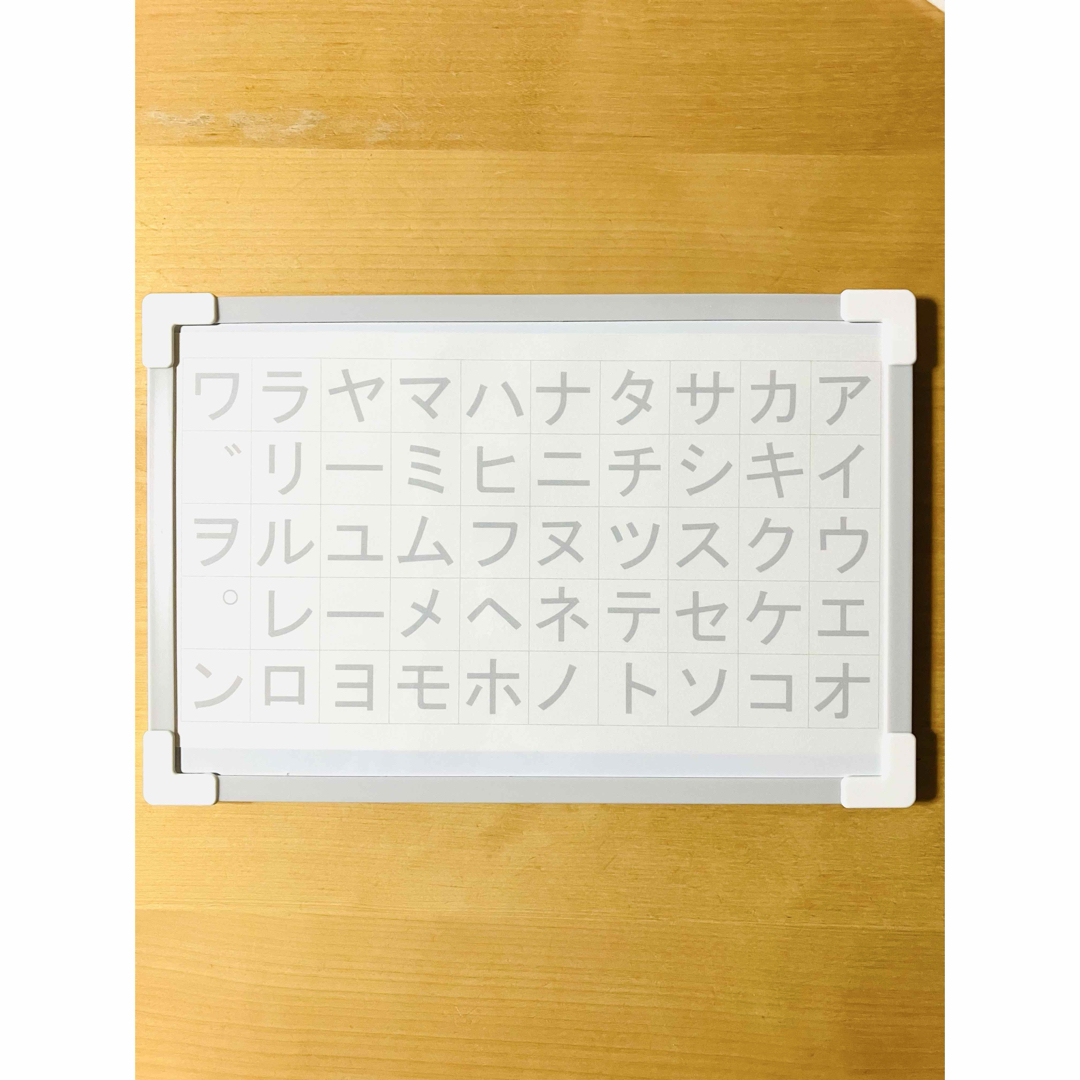 アイウエオ
カキクケコ
サシスセソ
タチツテト
ナニヌネノ
ハヒフヘホ
マミムメモ
ヤーユーヨ
ラリルレロ
ワ゛ヲ゜ン